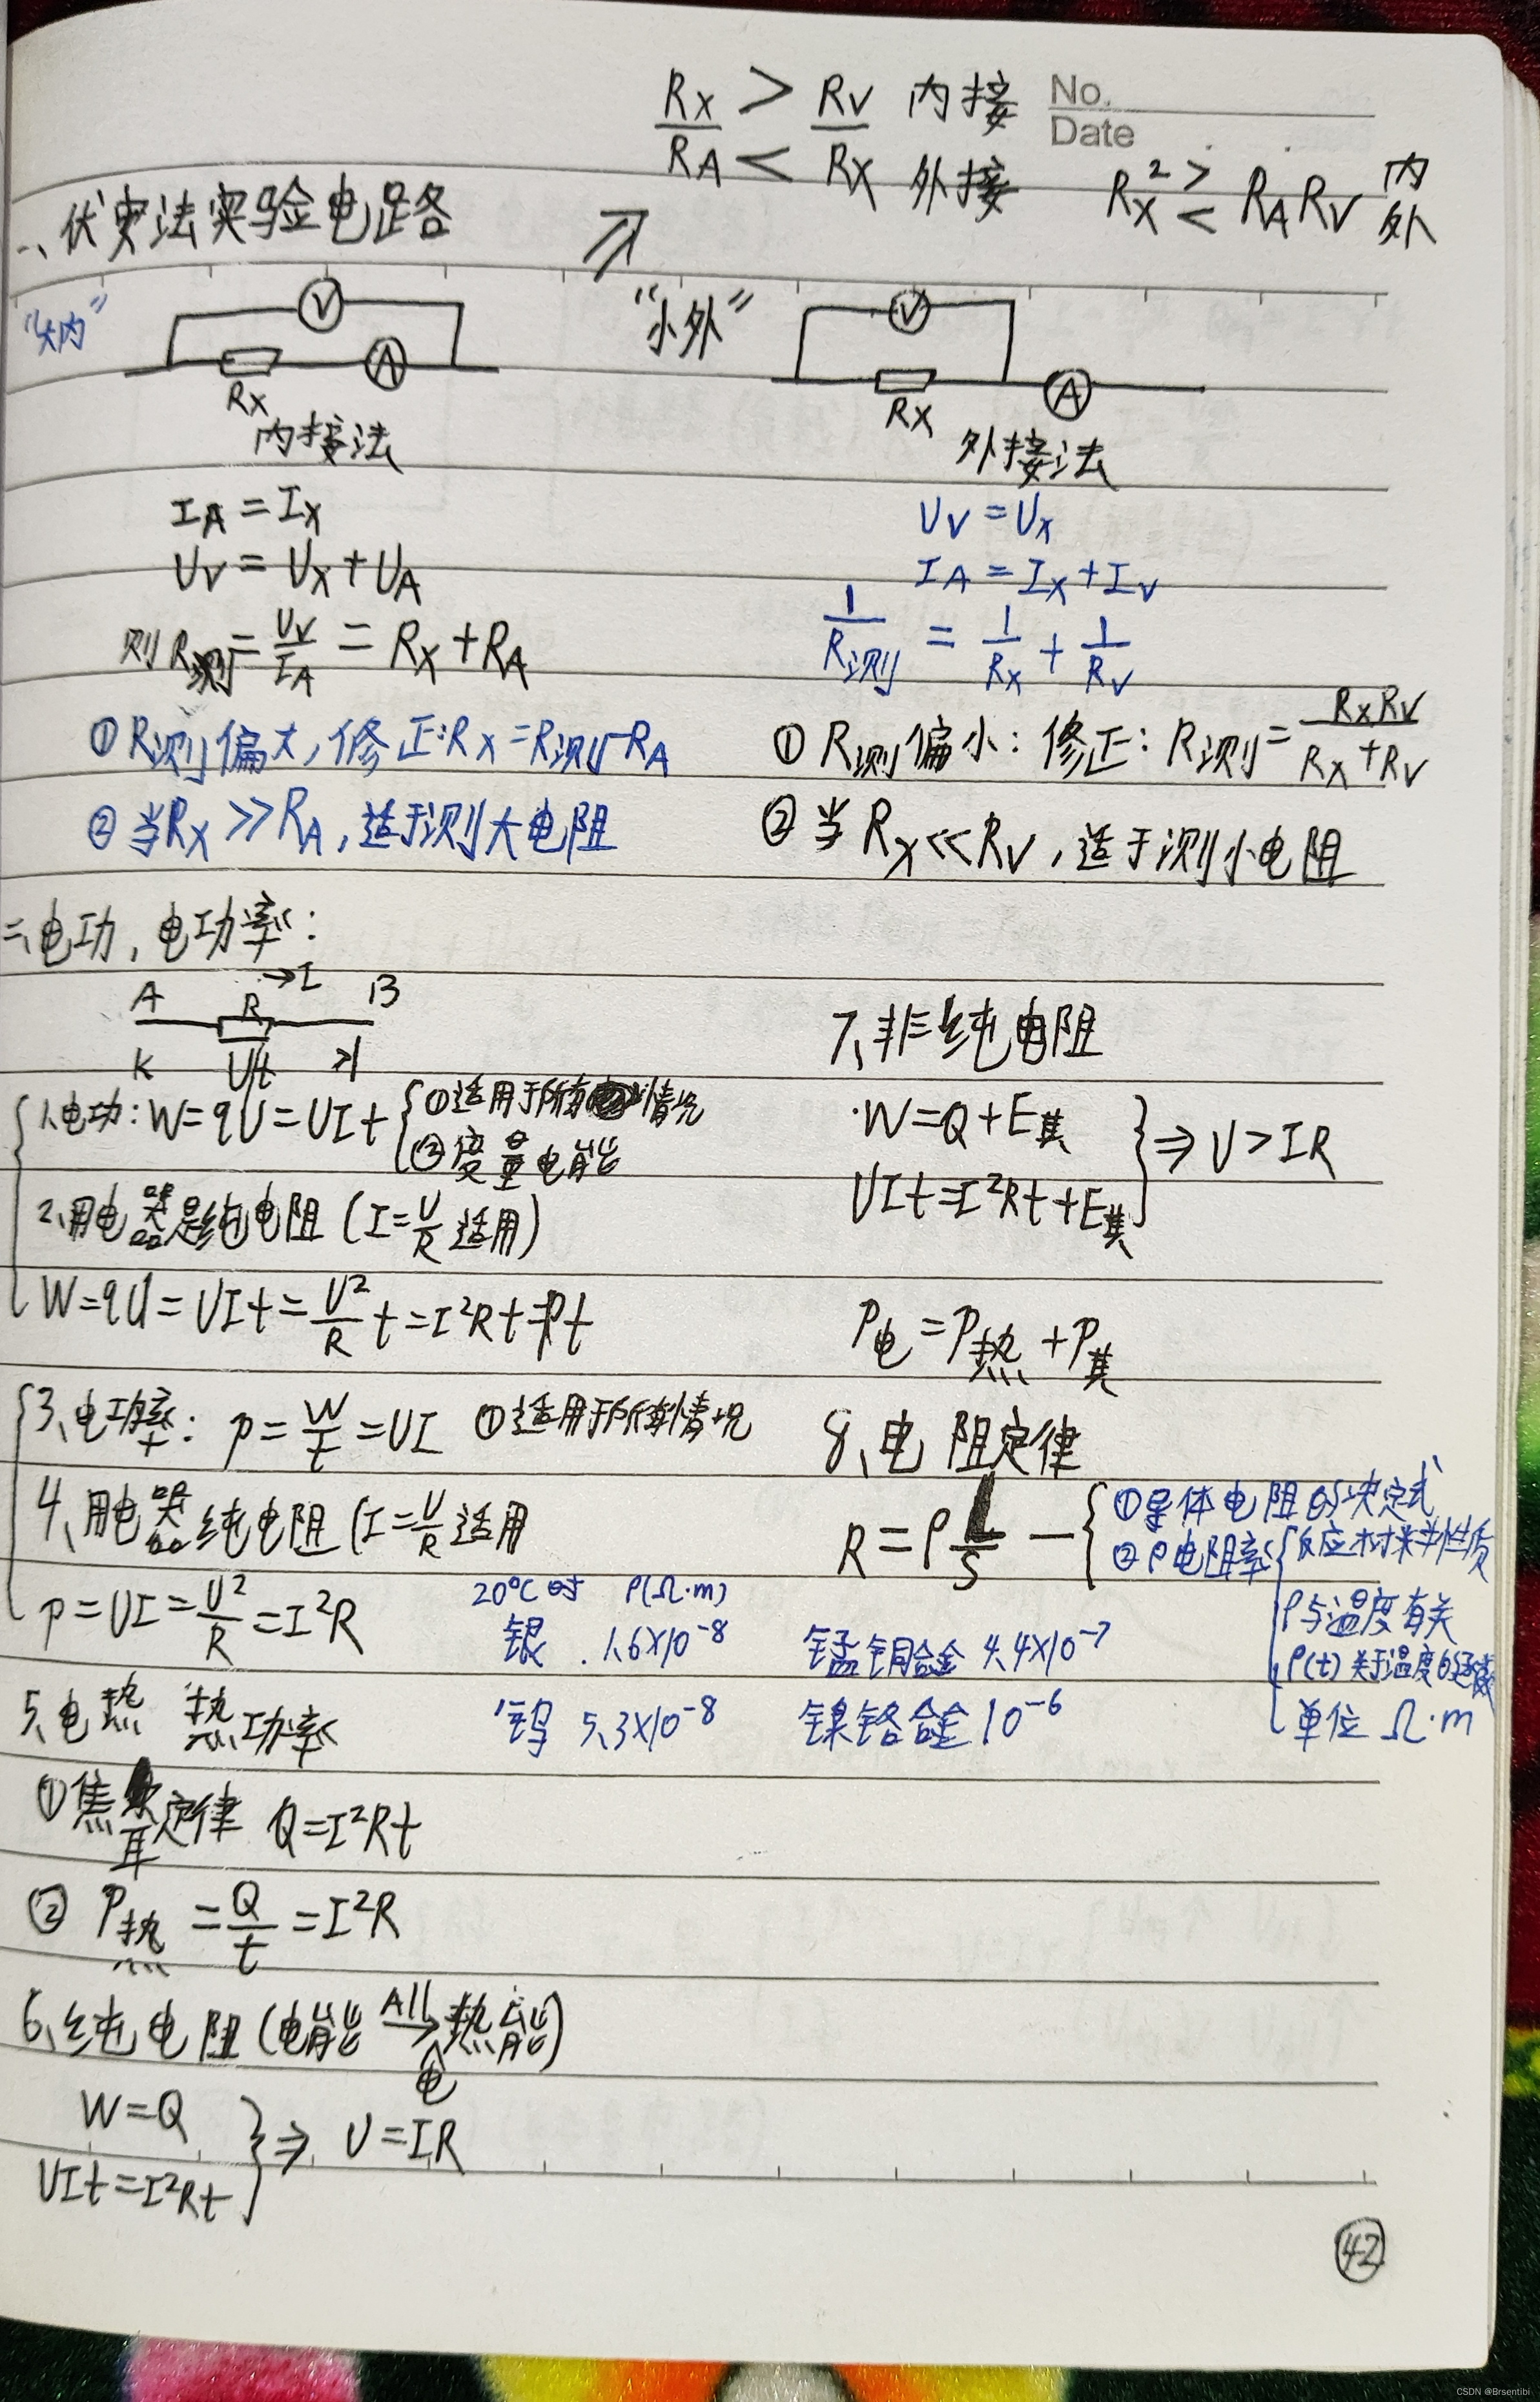 No.
Date
Rx/RA > Rv/Rx 内接
< 外接
Rx² > RARv 内
< 外
一、伏安法实验电路
"大内"
V
A
Rx
内接法
"小外"
V
A
Rx
外接法
IA = Ix
Uv = Ux + UA
则 R测 = Uv/IA = Rx + RA
① R测偏大,修正:Rx = R测 - RA
② 当Rx >> RA,适于测大电阻
Uv = Ux
IA = Ix + Iv
1/R测 = 1/Rx + 1/Rv
① R测偏小:修正:R测 = RxRv/Rx+Rv
② 当Rx << Rv,适于测小电阻
二、电功,电功率:
A R →I B
K U/t
1、电功:W=qU=UIt ①适用于所有情况
②度量电能
2、用电器是纯电阻(I=U/R 适用)
W=qU=UIt=U²/R t=I²Rt=Pt
3、电功率:P=W/t=UI ①适用于所有情况
4、用电器纯电阻(I=U/R 适用
P=UI=U²/R=I²R
5、电热 热功率
①焦耳定律 Q=I²Rt
② P热=Q/t=I²R
6、纯电阻(电能 All→ 热能)
电
W=Q
UIt=I²Rt
⇒ U=IR
7、非纯电阻
·W=Q+E其
UIt=I²Rt+E其
⇒ U>IR
P电=P热+P其
8、电阻定律
R=ρL/S — ①导体电阻的决定式
②ρ电阻率 反应材料性质
ρ与温度有关
ρ(t)关于温度的函数
单位 Ω·m
20℃时 ρ(Ω·m)
银 1.6×10⁻⁸ 锰铜合金 4.4×10⁻⁷
钨 5.3×10⁻⁸ 镍铬合金 10⁻⁶
42
CSDN @Brsentibi